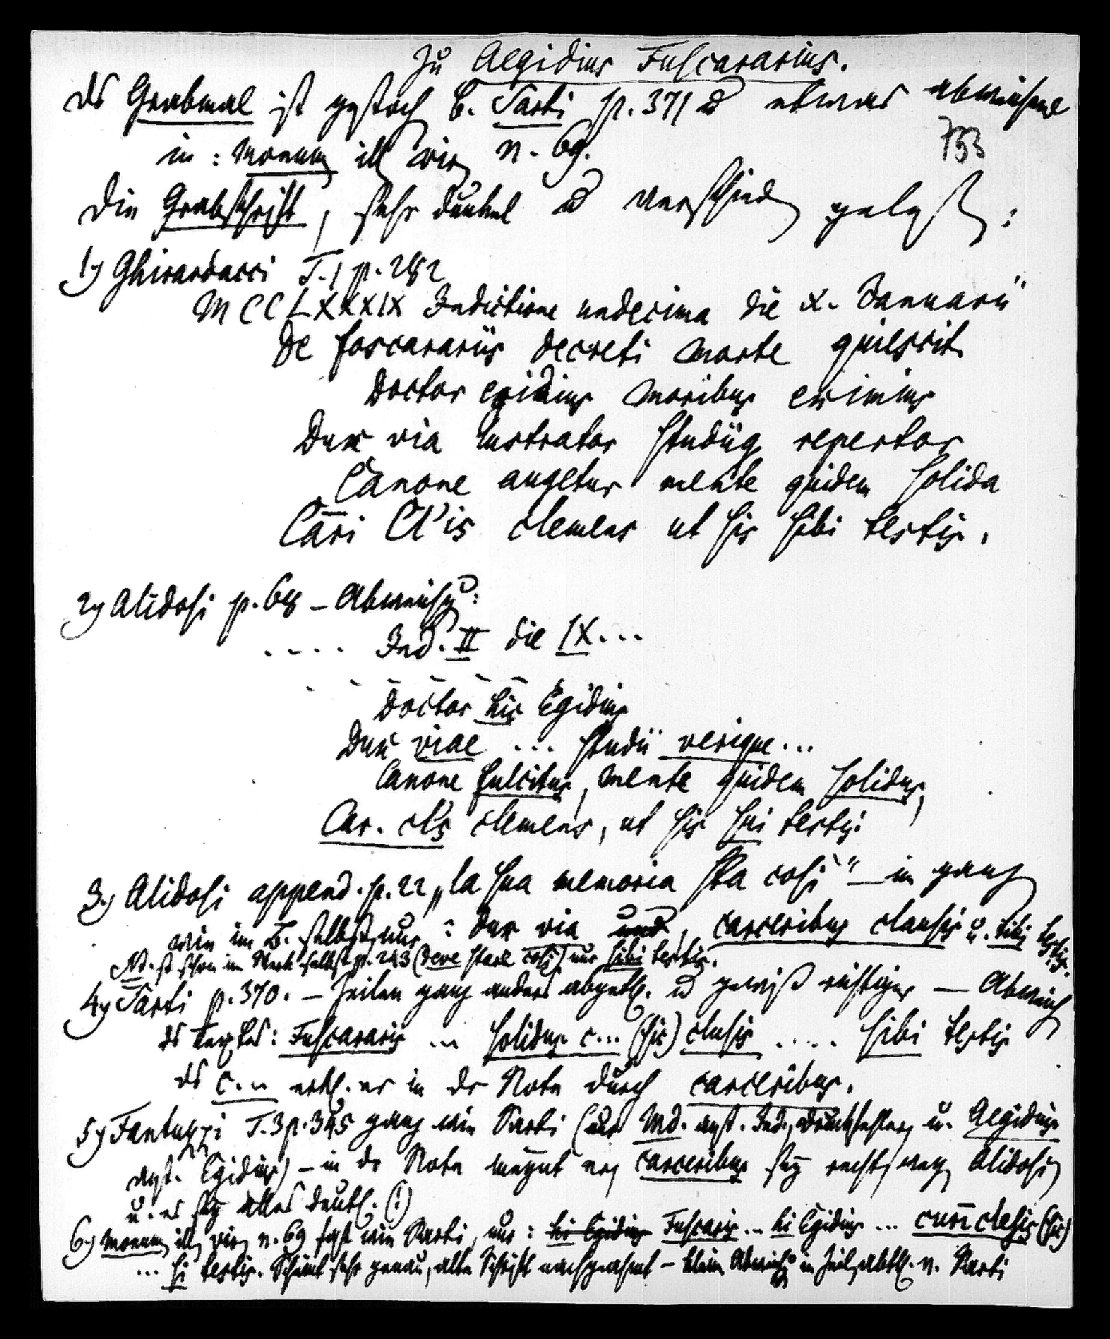 Zu Aegidius Fuscararius.
Das Grabmal ist gestoch. b. Sarti p. 371 u etwas abweichend
753
in: Monum ill vir n. 69.
Die Grabschrift, sehr dunkel u verschieden gelesen:
1) Ghirardacci T. 1 p. 282
MCCLXXXIX Indictione undecima die X. Januarii
De foscarariis decreti morte quiescit
Doctor egidius moribus eximius
Dux via lustrator studiiq repertor
Canone augetur mente quidem solida
Cari Cl'is clemens ut sis sibi testis.
2) Alidosi p. 68 – Abweichg:
.... Ind. II die IX...
Doctor his Egidius
Dux viae ... studii verique...
Canone fulcitus, mente quidem solidus,
Car. cl's clemens, ut sis sui testis
3) Alidosi append. p. 22 „la sua memoria sta così“ – in ganz
wie im B. selbst, nur: Dux via, carceribus clausis u. tibi testis.
Nb. ist schon im Werk selbst p. 243 (deve stare così) nur sibi testis.
4) Sarti p. 370. – Zeilen ganz anders abgeth. u gewiß richtiger – Abweich
ds Textes: Fuscararis ... solidus c... (sic) clusis .... sibi testis
ds c... erkl. er in der Note durch carceribus.
5) Fantuzzi T. 3 p. 345 ganz wie Sarti (nur Md. anst. Ind., Druckfehler, u. Aegidius
anst. Egidius) – in der Note meynt er, carceribus sey recht, wegen Alidosi,
u. es sey alles deutl. (!)
6) Monum ill vir n. 69 fast wie Sarti, nur: Fuscaris ... hi Egidius ... cuñ clesis (sic)
... si testis. Scheint sehr genau, alte Schrift nachgeahmt – kleine Abweichg in Zeilenabth. v. Sarti